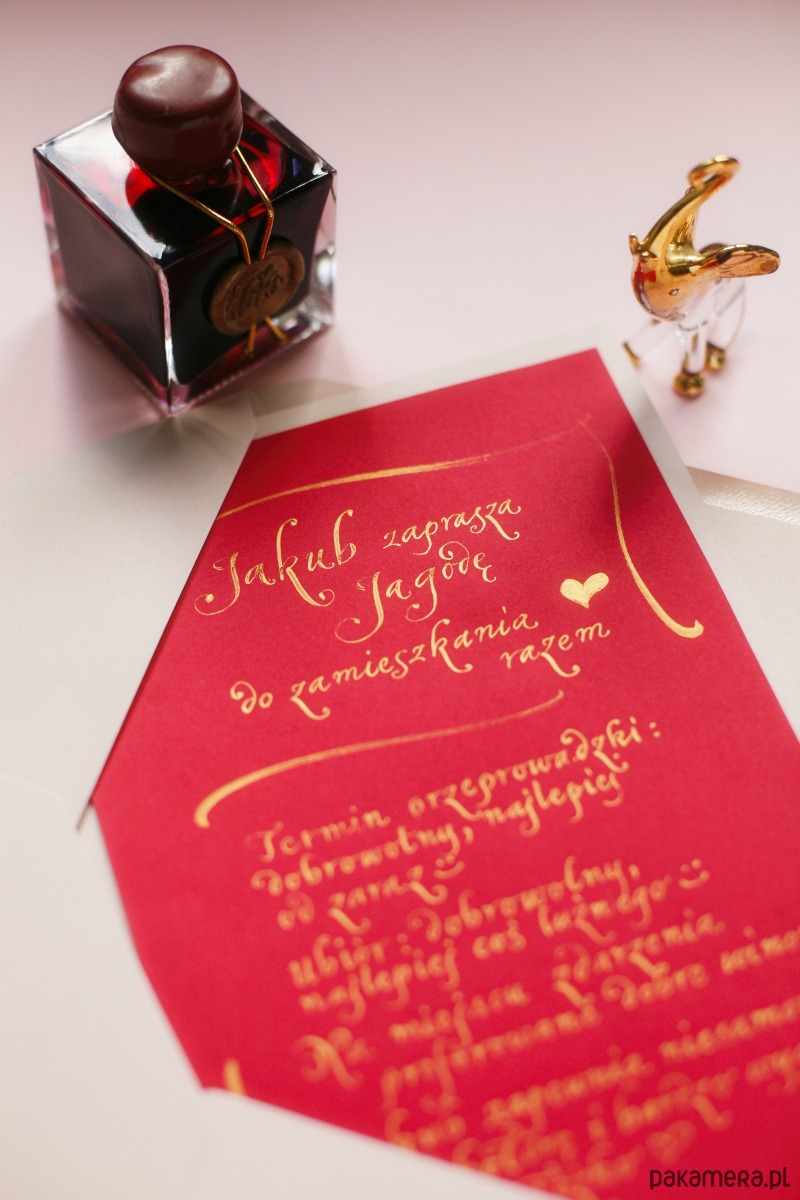 Jakub zaprasza
Jagodę
do zamieszkania
razem
Termin przeprowadzki:
dobrowolny, najlepiej
od zaraz
Ubiór: dobrowolny,
najlepiej coś luźnego
Na miejscu zdarzenia
preferowane dobre wino
pakamera.pl